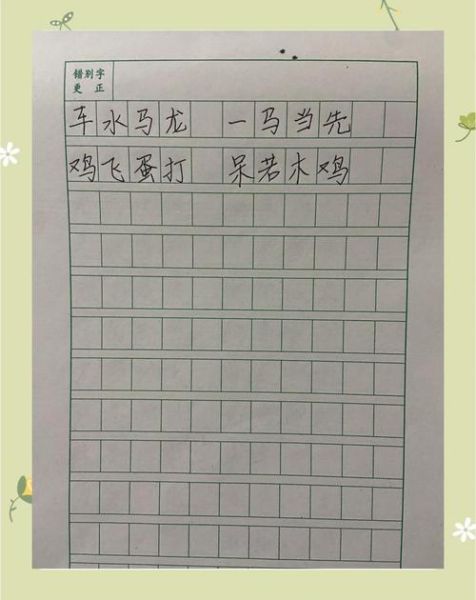 错别字
更 正
车水马龙 一马当先
鸡飞蛋打 呆若木鸡